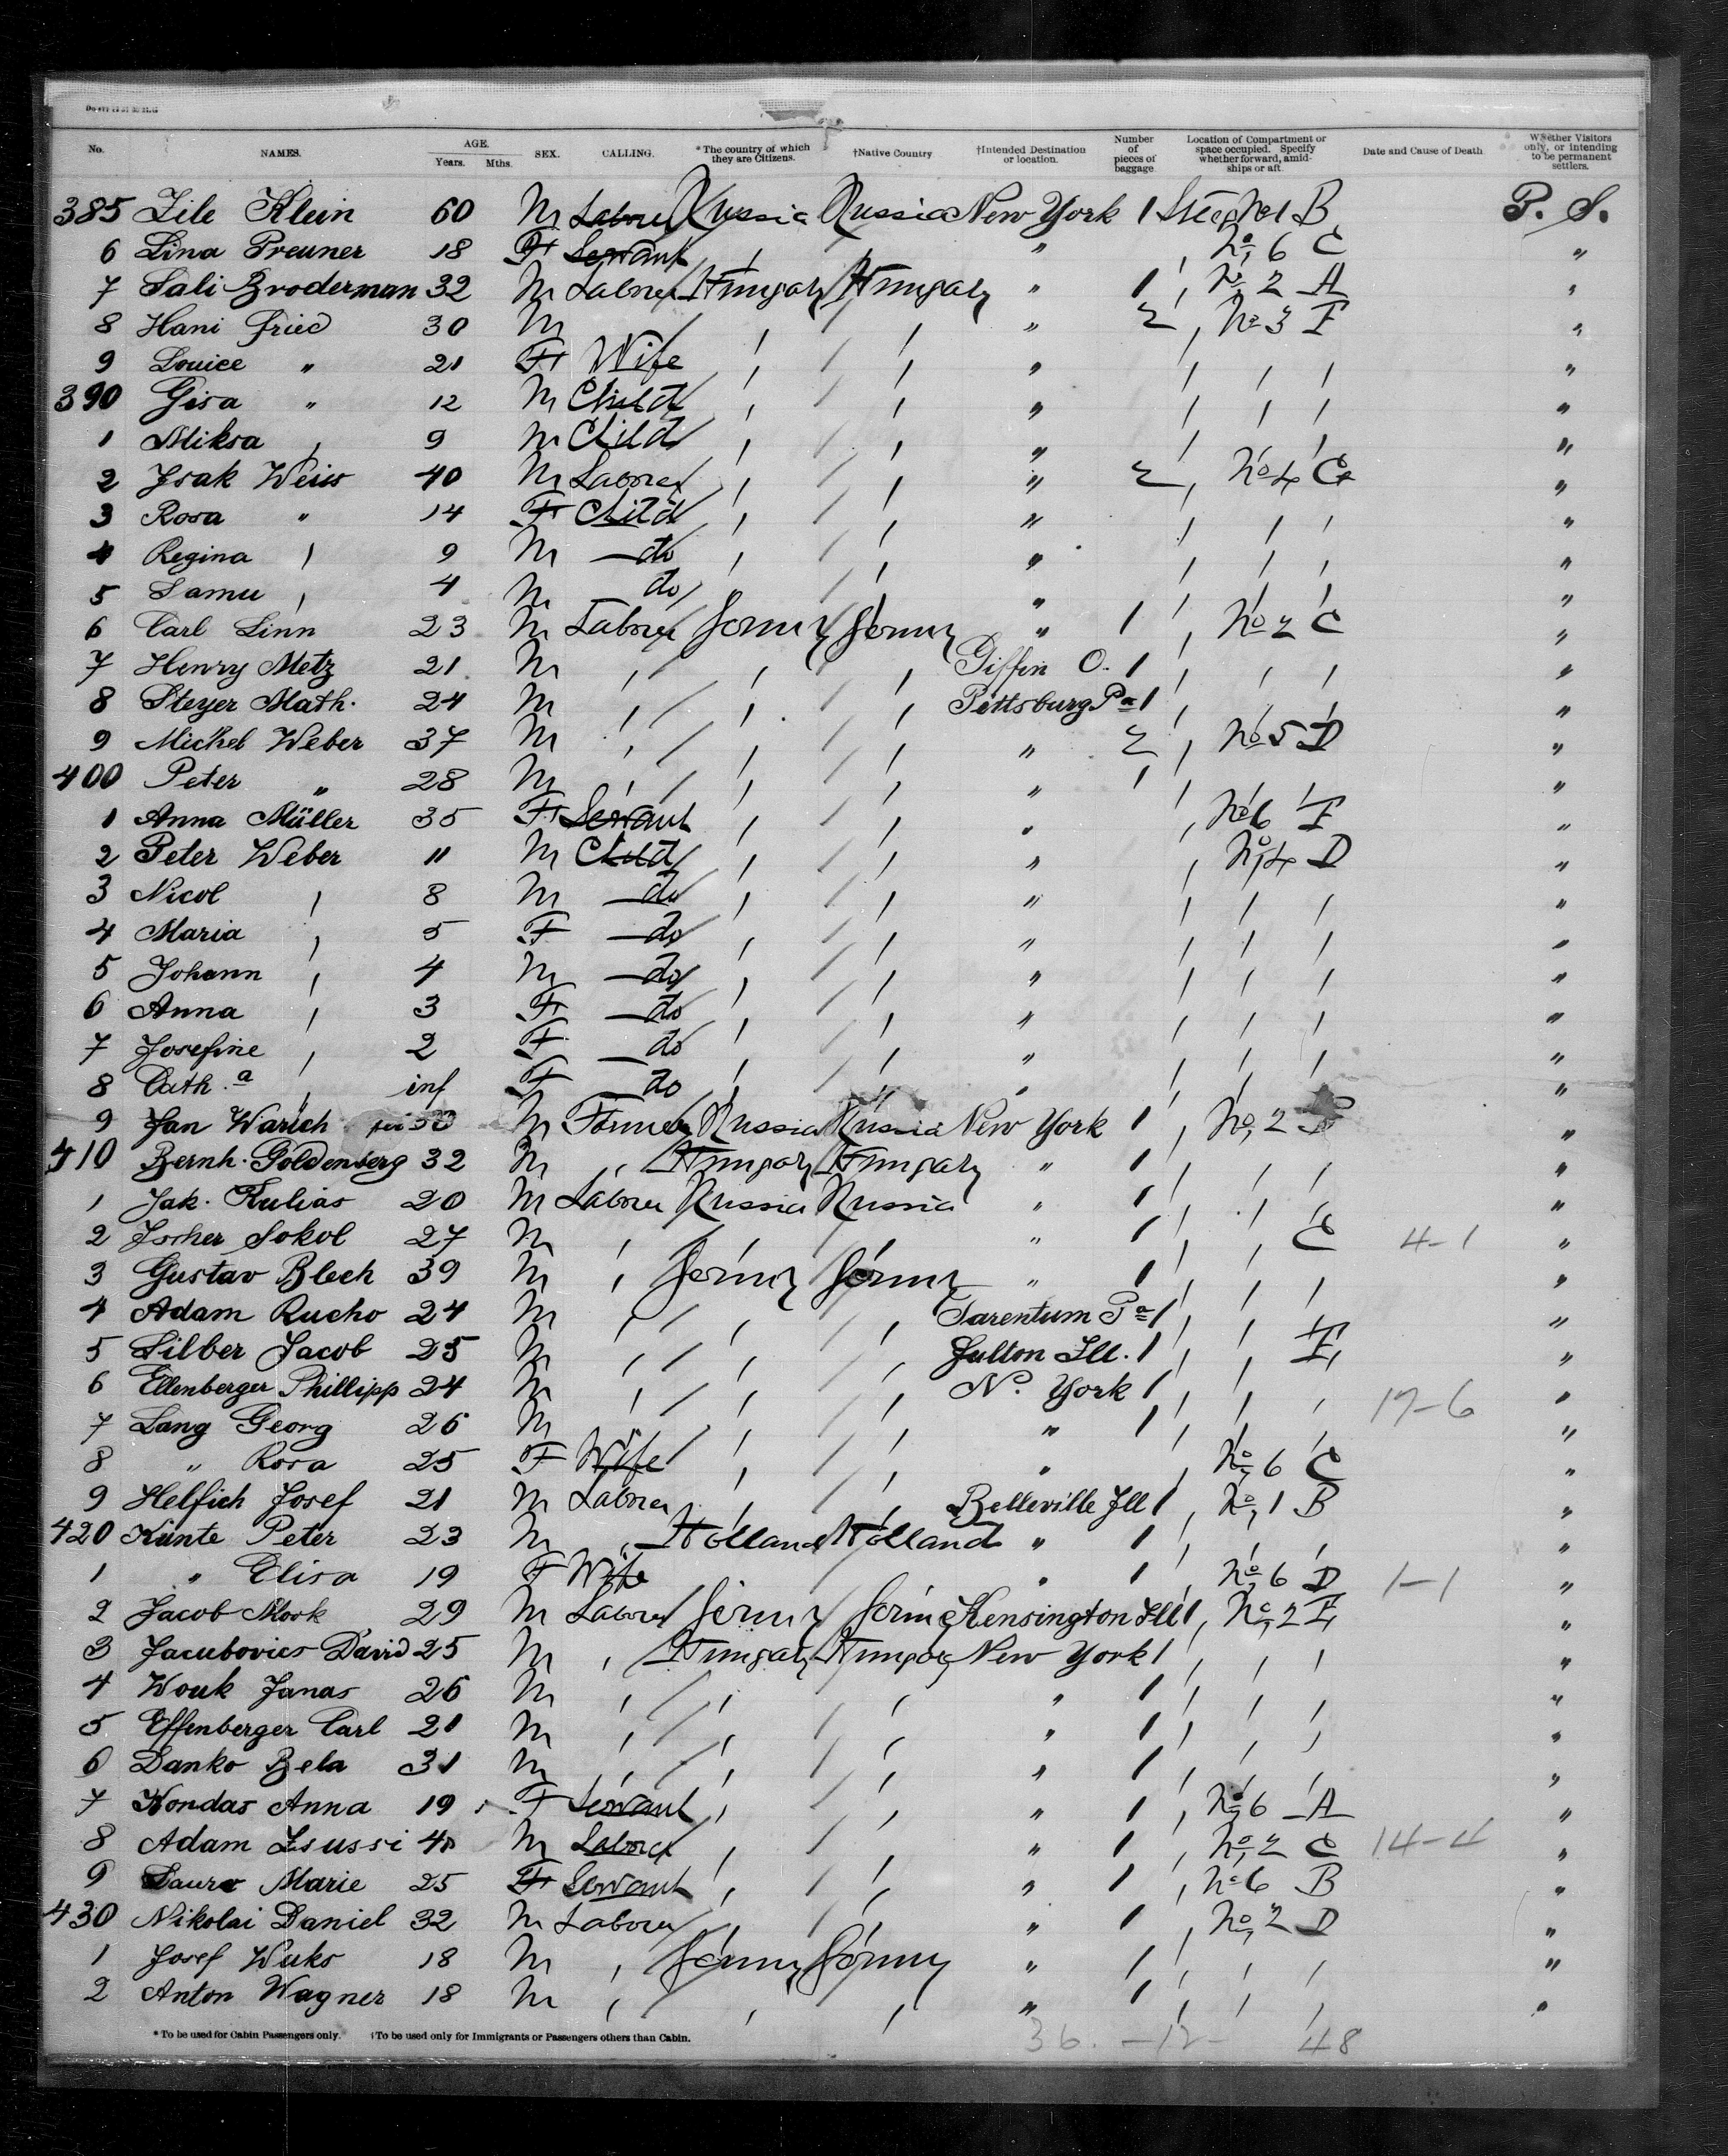 No. NAMES. AGE. Years. Mths. SEX. CALLING. *The country of which they are Citizens. †Native Country †Intended Destination or location. Number of pieces of baggage Location of Compartment or space occupied. Specify whether forward, amidships or aft. Date and Cause of Death Whether Visitors only, or intending to be permanent settlers.
385 Zile Klein 60 M Laborer Russia Russia New York 1 No 1 B P. S.
6 Lina Preuner 18 F Servant , , " , No 6 C "
7 Sali Broderman 32 M Laborer Hungary Hungary " 1 , No 2 A "
8 Hani Fried 30 M , , " 2 , No 3 F "
9 Louice " 21 F Wife , , " , , , "
390 Gisa " 12 M Child , , " , , , "
1 Miksa , 9 M Child , , " , , , "
2 Isak Weiss 40 M Laborer , , " 2 , No 4 C "
3 Rosa " 14 F Child , , " , , , "
4 Regina , 9 M do , , " , , , "
5 Samu , 4 M do , , " , , , "
6 Carl Linn 23 M Laborer Germny Germny " 1 , No 2 C "
7 Henry Metz 21 M , , , Tiffin O. 1 , , , "
8 Steyer Math. 24 M , , , Pittsburg Pa 1 , , , "
9 Michel Weber 37 M , , , " 2 , No 5 D "
400 Peter " 28 M , , , " 1 , , , "
1 Anna Müller 35 F Servant , , " , No 6 F "
2 Peter Weber 11 M Child , , " , No 4 D "
3 Nicol , 8 M do , , " , , , "
4 Maria , 5 F do , , " , , , "
5 Johann , 4 M do , , " , , , "
6 Anna , 3 F do , , " , , , "
7 Josefine , 2 F do , , " , , , "
8 Cath.a , inf F do , , " , , , "
9 Jan Warich 30 M Farmer Russia Russia New York 1 , No 2 "
410 Bernh. Goldenberg 32 M , Hungary Hungary " 1 , , , "
1 Jak. Kulias 20 M Laborer Russia Russia " 1 , , , "
2 Joscher Sokol 27 M , , , " 1 , , C 4-1 "
3 Gustav Blech 39 M , Germny Germny " 1 , , , "
4 Adam Rucho 24 M , , , Tarentum Pa 1 , , , "
5 Silber Jacob 25 M , , , Fulton Ill. 1 , , F "
6 Ellenberger Phillipp 24 M , , , N. York 1 , , , 17-6 "
7 Lang Georg 26 M , , , " 1 , , , "
8 " Rosa 25 F Wife , , " , No 6 C "
9 Helfich Josef 21 M Laborer , , Belleville Ill 1 , No 1 B "
420 Künte Peter 23 M " Holland Holland " 1 , , , "
1 " Elisa 19 F Wife " 1 , No 6 D 1-1 "
2 Jacob Mook 29 M Laborer Germny Germ Kensington Ill 1 , No 2 F "
3 Jacubovics David 25 M , Hungary Hungary New York 1 , , , "
4 Wouk Janas 26 M , , , " 1 , , , "
5 Effenberger Carl 21 M , , , " 1 , , , "
6 Danko Bela 31 M , , , " 1 , , , "
7 Kondas Anna 19 F Servant , , " 1 , No 6 A "
8 Adam Zsussi M Laborer , , " 1 , No 2 C 14-4 "
9 Marie 25 F Servant , , " 1 , No 6 B "
430 Nikolai Daniel 32 M Laborer , , " 1 , No 2 D "
1 Josef Wuks 18 M , Germny Germny " 1 , , , "
2 Anton Wagner 18 M , , , " 1 , , , "
*To be used for Cabin Passengers only. †To be used only for Immigrants or Passengers others than Cabin.
36. -12- 48